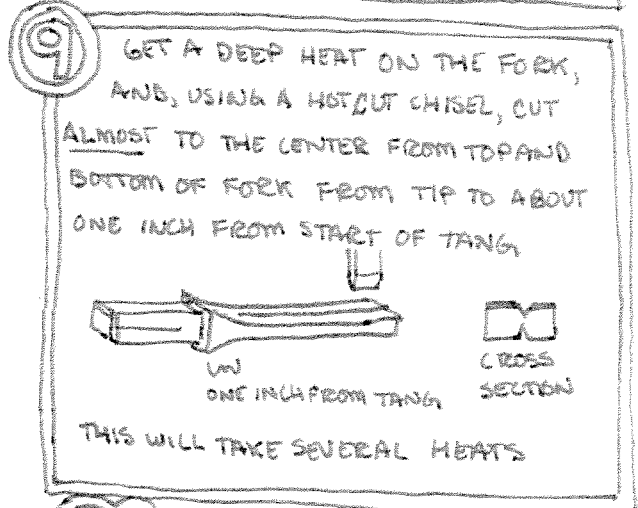 9
GET A DEEP HEAT ON THE FORK,
AND, USING A HOTCUT CHISEL, CUT
ALMOST TO THE CENTER FROM TOP AND
BOTTOM OF FORK FROM TIP TO ABOUT
ONE INCH FROM START OF TANG
ONE INCH FROM TANG
CROSS
SECTION
THIS WILL TAKE SEVERAL HEATS